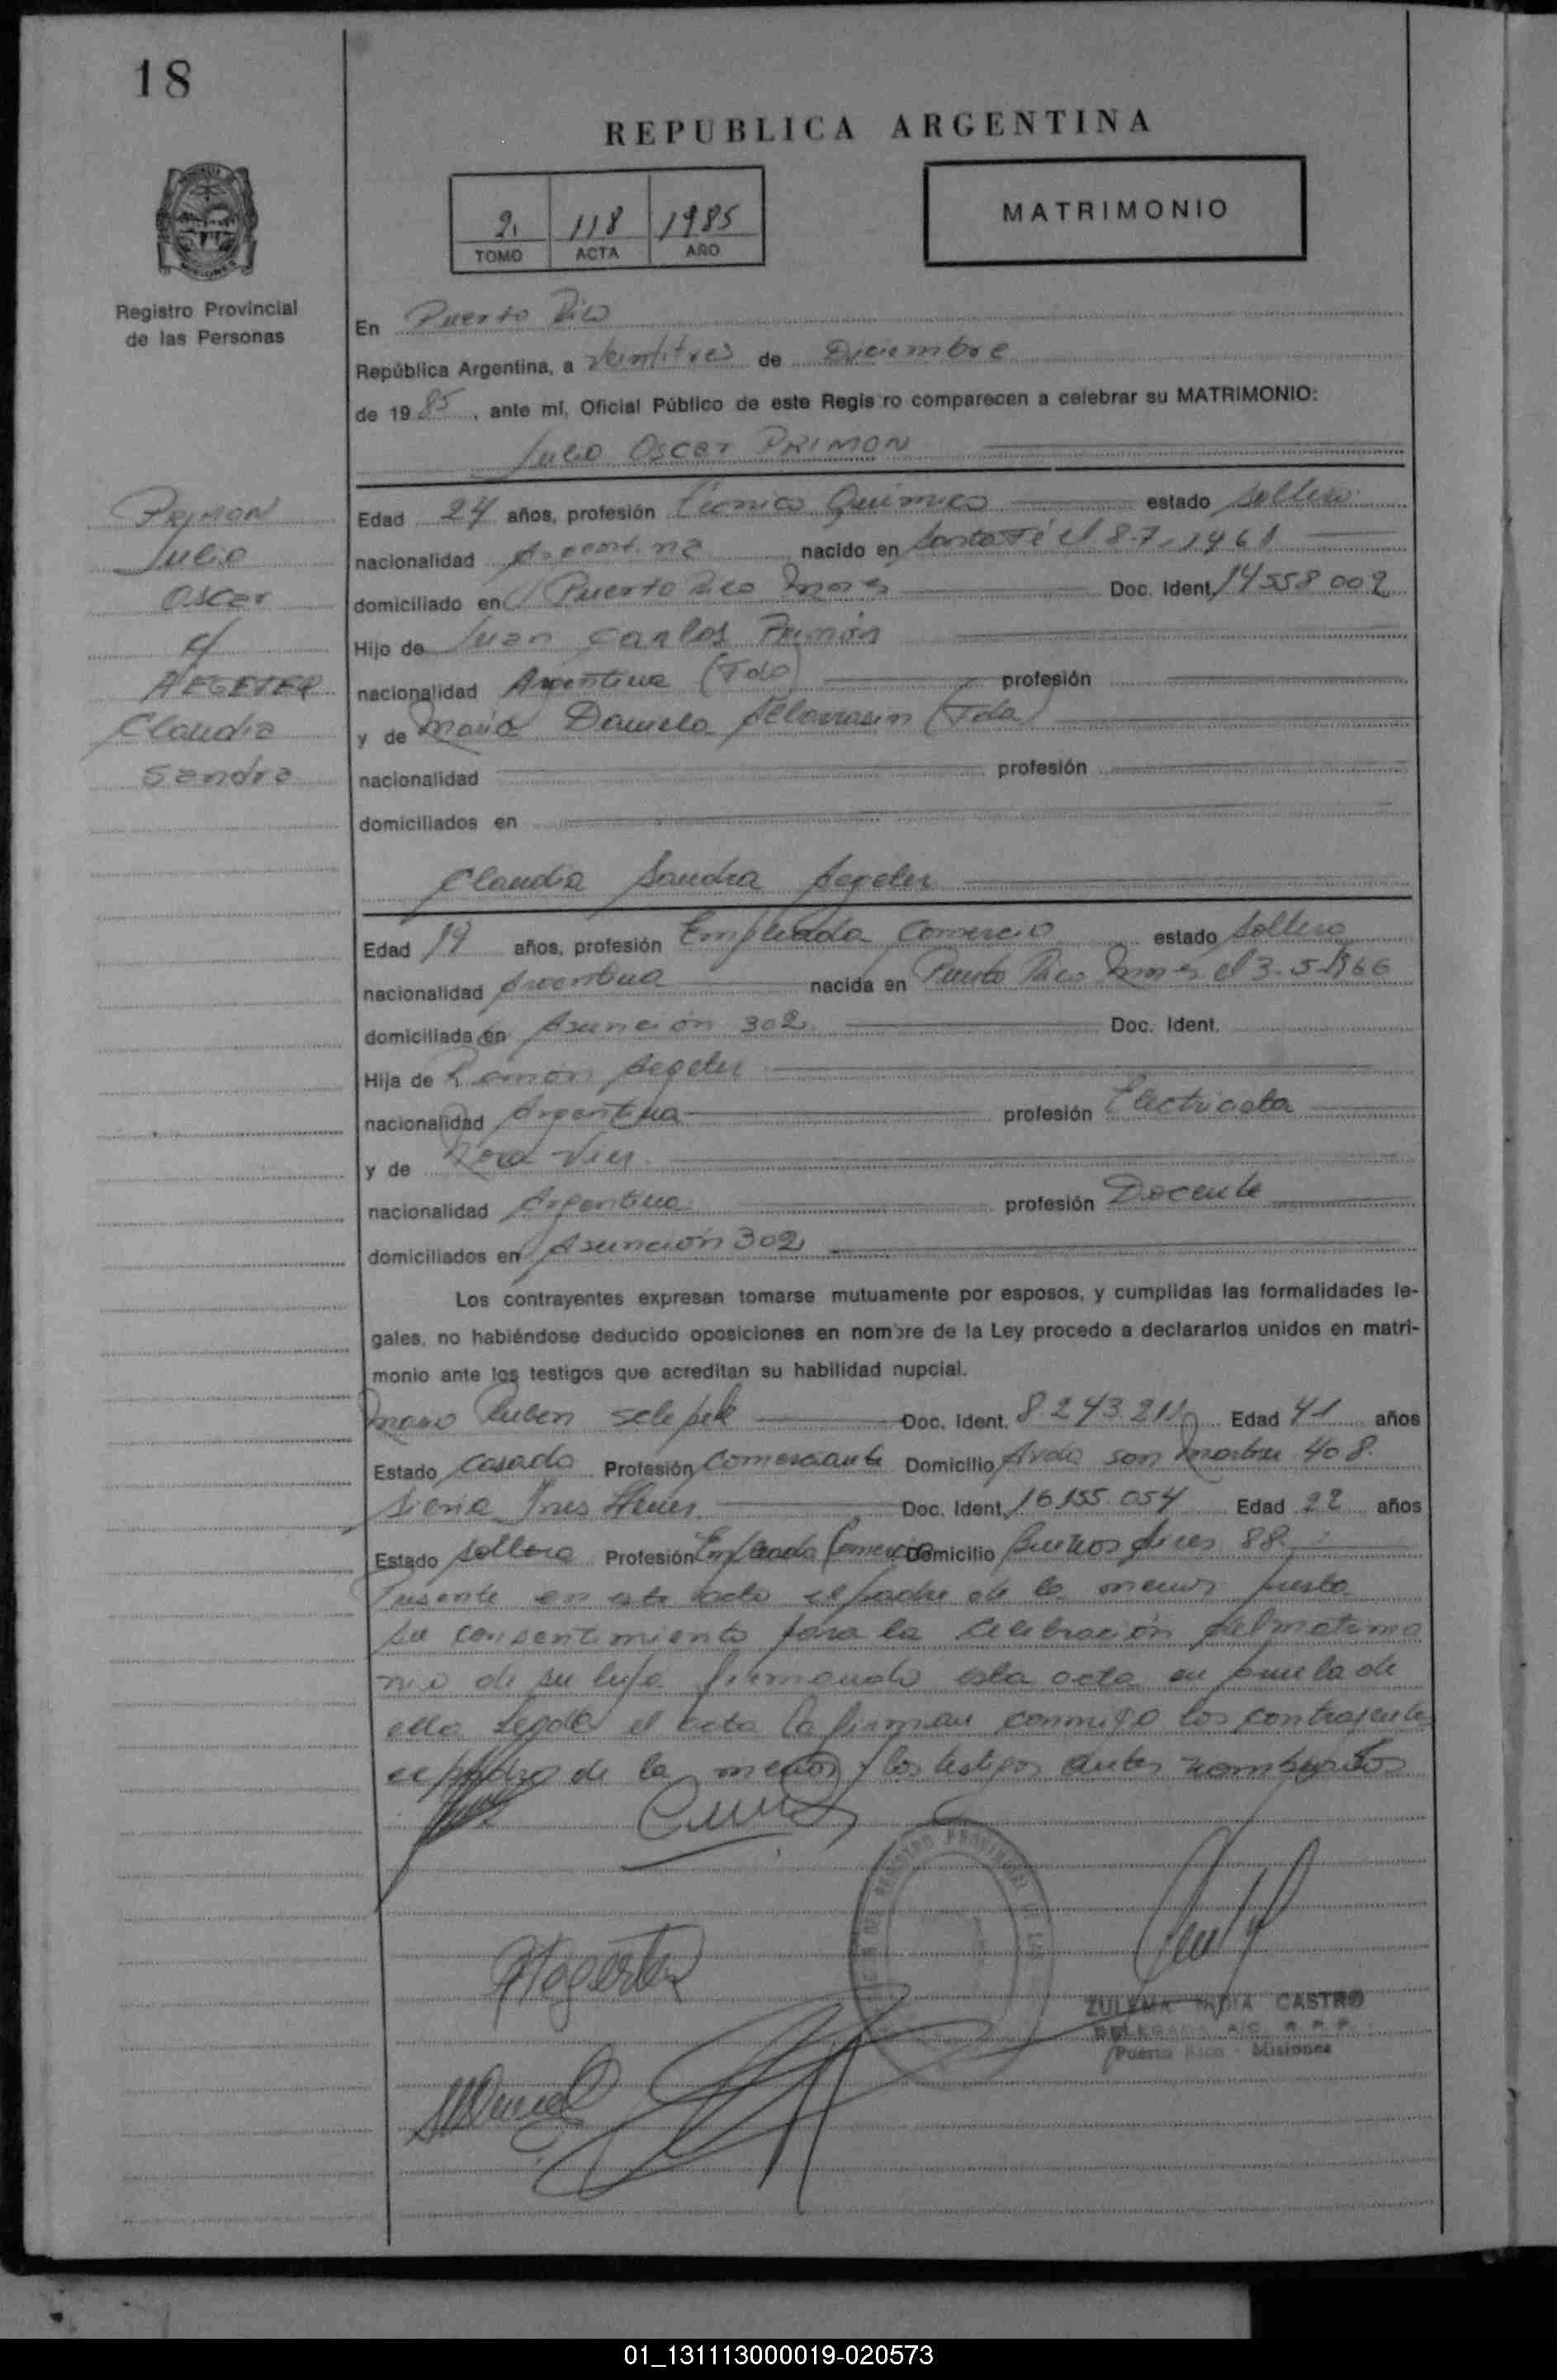 18
REPUBLICA ARGENTINA
2 118 1985
TOMO ACTA AÑO
MATRIMONIO
Registro Provincial
de las Personas
En Puerto Rico
República Argentina, a Veintitres de Diciembre
de 1985, ante mí, Oficial Público de este Regis ro comparecen a celebrar su MATRIMONIO:
Julio Oscar PRIMON
PRIMON
Julio
Oscar
c/
AEGETER
Claudia
Sandra
Edad 24 años, profesión Técnico Químico estado soltero
nacionalidad Argentina nacido en Santa Fé el 8-7-1961
domiciliado en Puerto Rico Mnes Doc. Ident. 14558002
Hijo de Juan Carlos Primón
nacionalidad Argentina (Fdo) profesión
y de María Daniela (Fda)
nacionalidad profesión
domiciliados en
Claudia Sandra Aegeter
Edad 19 años, profesión Empleada Comercio estado soltera
nacionalidad Argentina nacida en Puerto Rico Mnes el 3-5-1966
domiciliada en Asunción 302 Doc. Ident.
Hija de Ramón Aegeter
nacionalidad Argentina profesión Electricista
y de
nacionalidad Argentina profesión Docente
domiciliados en Asunción 302
Los contrayentes expresan tomarse mutuamente por esposos, y cumplidas las formalidades le-
gales, no habiéndose deducido oposiciones en nombre de la Ley procedo a declararlos unidos en matri-
monio ante los testigos que acreditan su habilidad nupcial.
Ruben Doc. Ident. 8.243.211 Edad 41 años
Estado Casado Profesión Comerciante Domicilio Avda San Martin 408
Ines Doc. Ident. 16.155.054 Edad 22 años
Estado soltera Profesión Empleada Comercio Domicilio Buenos Aires 88
Presente en este acto el padre de la menor presta
su consentimiento para la celebración del matrimo
nio de su hija firmando esta acta en prueba de
ello Leída el acta la firman conmigo los contrayentes
el padre de la menor y los testigos antes nombrados
REGISTRO PROVINCIAL DE LAS
ZULEMA NADIA CASTRO
DELEGADA A/C R.P.P.
Puerto Rico - Misiones
01_131113000019-020573